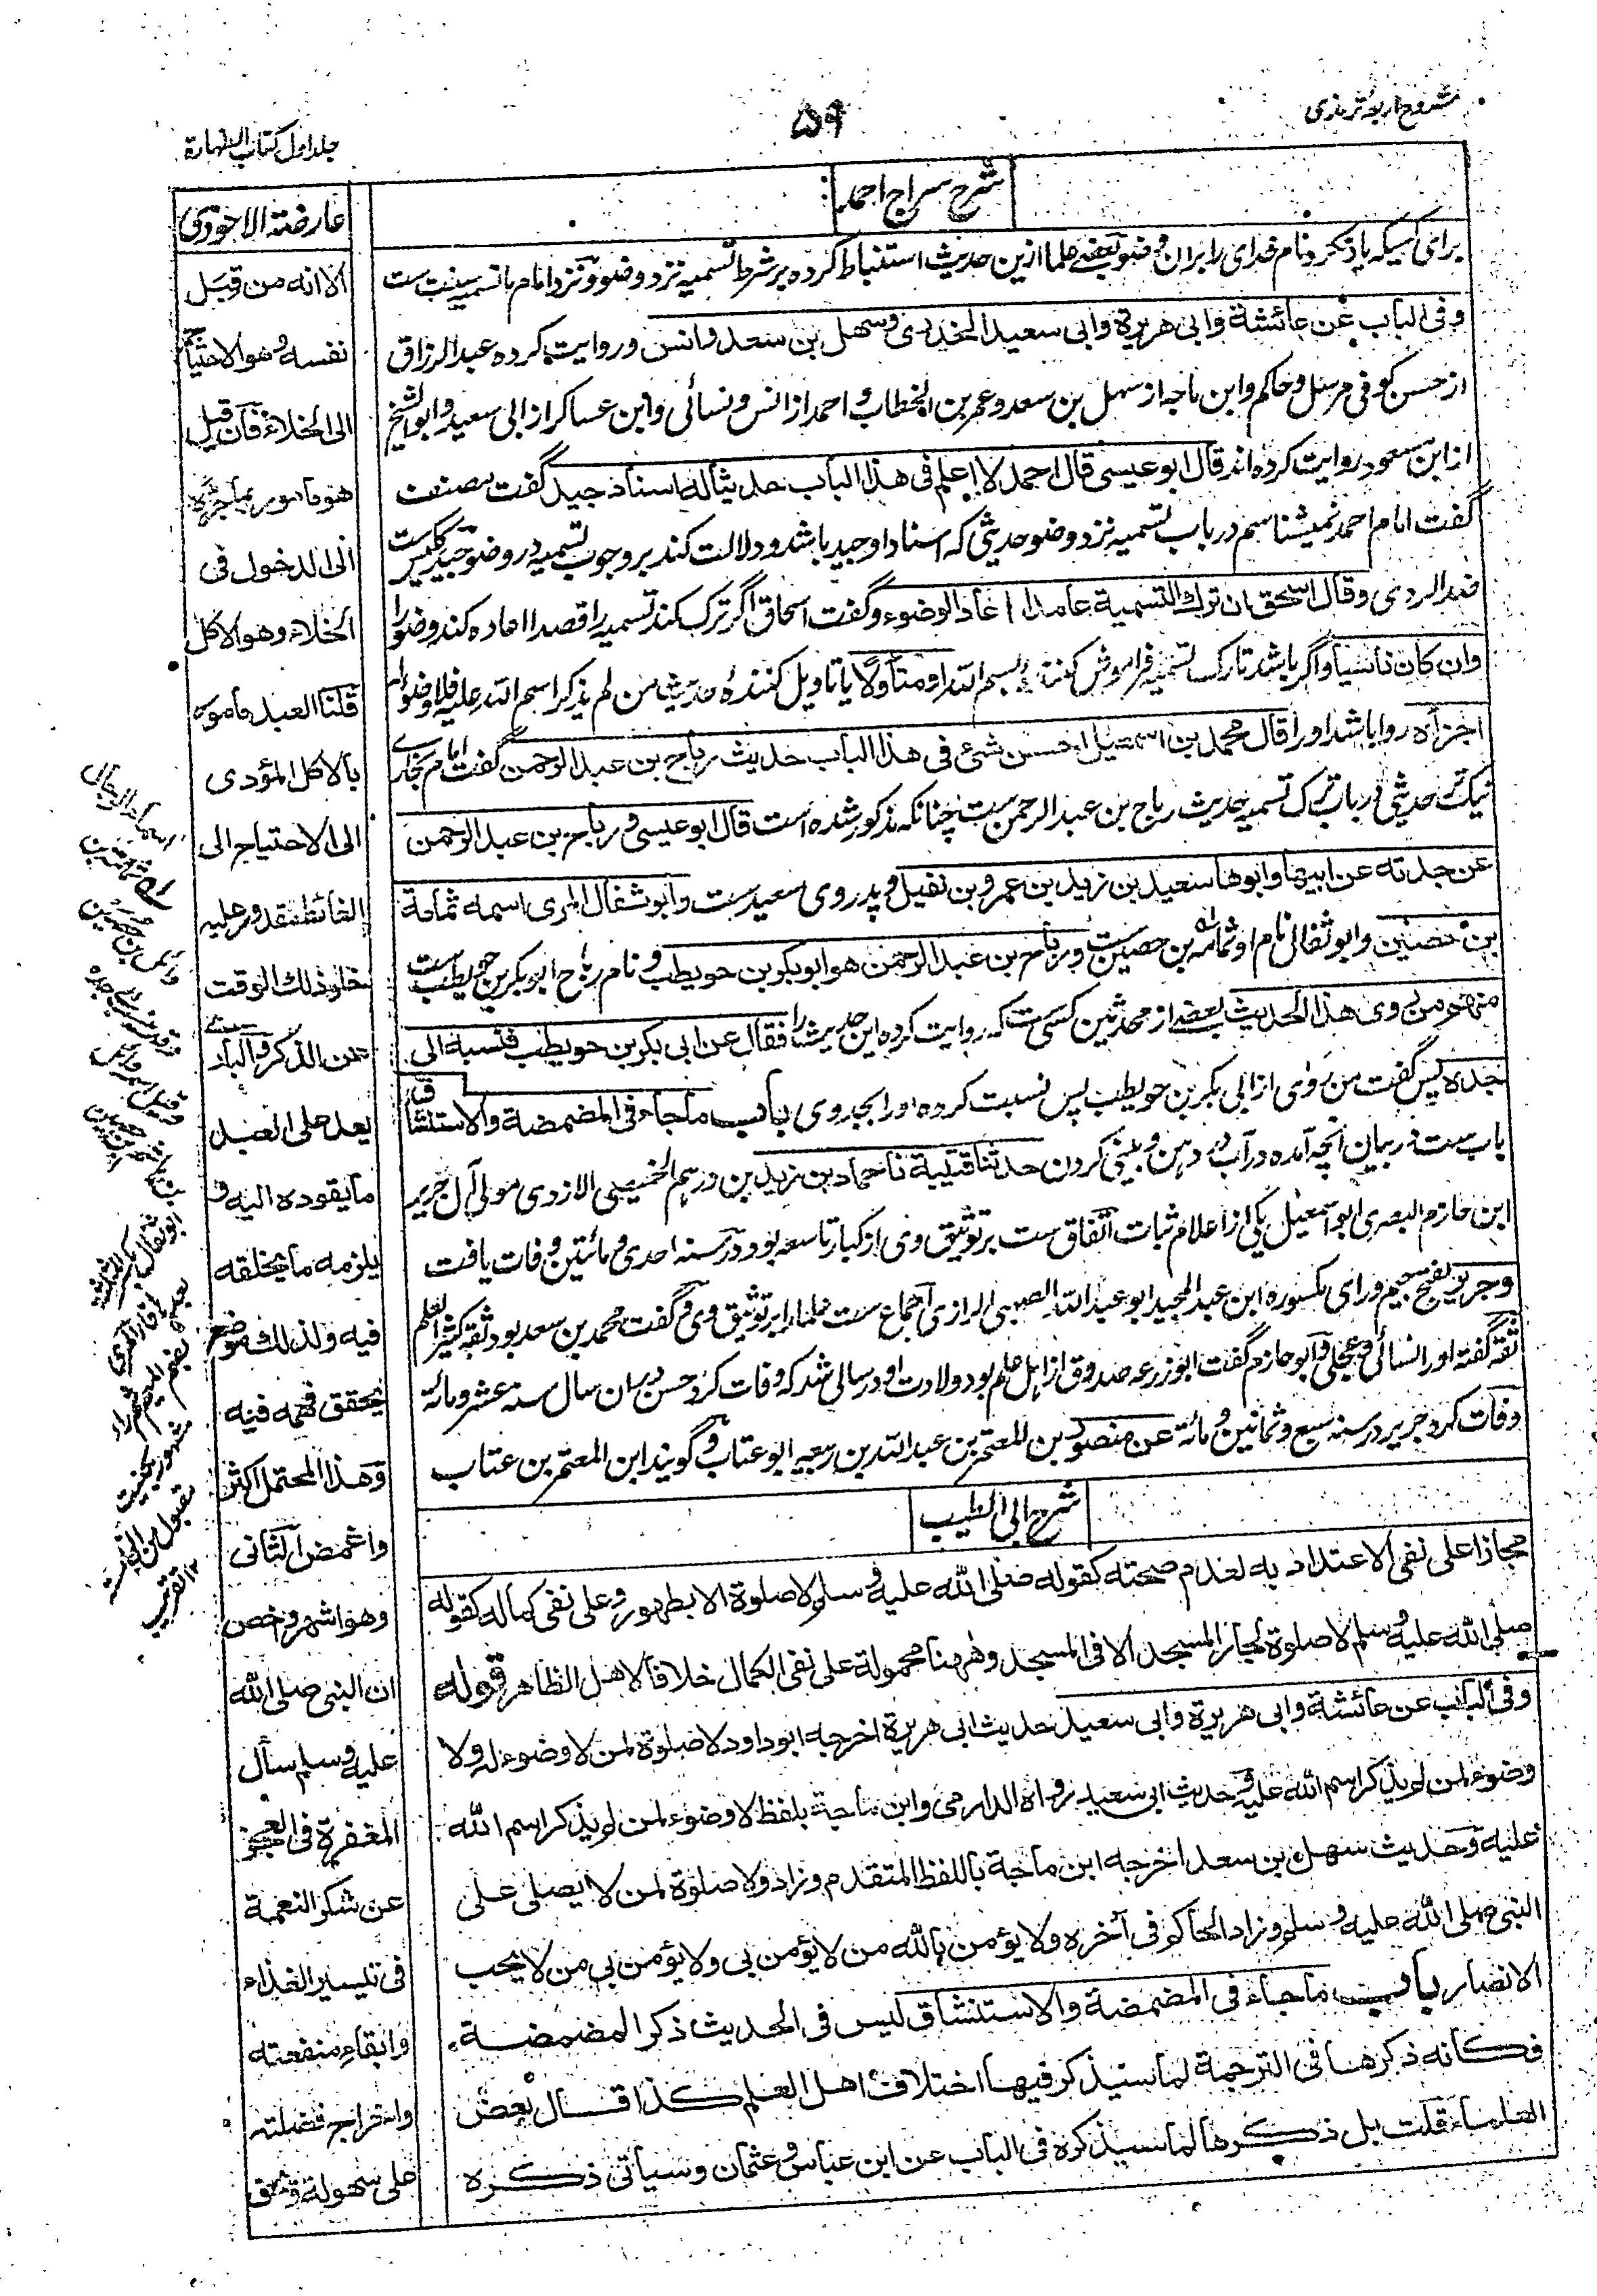 شروح اربعه ترمذی
۵۹
جلد اول کتاب الطهارة
شرح سراج احمد
برای کسیکه یاد نکرد نام خدای را بران وضو بعضے علما ازین حدیث استنباط کرده بر شرط تسمیه نزد وضو و نزد امام ما تسمیه سنت ست
وفی الباب عن عائشة وابی هریرة وابی سعید الخدری وسهل بن سعد وانس وروایت کرده عبد الرزاق
از حسن کوفی مرسل وحاکم وابن ماجه از سهل بن سعد وعمر بن الخطاب واحمد از انس ونسائی وابن عساکر از ابی سعید وابو الشیخ
از ابن مسعود روایت کرده اند قال ابو عیسی قال احمد لا اعلم فی هذا الباب حدیثا له اسناد جید گفت مصنف
گفت امام احمد نمیشناسم در باب تسمیه نزد وضو حدیثی که اسناد او جید باشد ودلالت کند بر وجوب تسمیه در وضو
ضد الردی وقال اسحق ان ترك التسمیة عامدا اعاد الوضوء وگفت اسحاق اگر ترک کند تسمیه را قصدا اعاده کند وضو را
وان کان ناسیا واگر باشد تارک تسمیه فراموش کننده بسم الله او متأولا یا تاویل کننده حدیث من لم یذکر اسم الله علیه فلا وضوء له
اجزأه روا باشد او را قال محمد بن اسمعیل احسن شئ فی هذا الباب حدیث رباح بن عبد الرحمن گفت امام بخاری
نیک تر حدیثی در باب ترک تسمیه حدیث رباح بن عبد الرحمن ست چنانکه مذکور شده است قال ابو عیسی ورباح بن عبد الرحمن
عن جدته عن ابیها وابوها سعید بن زید بن عمرو بن نفیل وپدر روی سعید ست وابو ثفال المری اسمه ثمامة
بن حصین وابو ثفال نام او ثمامه بن حصین ست ورباح بن عبد الرحمن هو ابو بکر بن حویطب ونام رباح ابو بکر بن حویطب ست
منهم من روی هذا الحدیث بعضے از محدثین کسی ست که روایت کرده این حدیث را فقال عن ابی بکر بن حویطب فنسبه الی
جده پس گفت من روی از ابی بکر بن حویطب پس نسبت کرده او را بجد وی باب ما جاء فی المضمضة والاستنشاق
باب ست در بیان آنچه آمده در آب در دهن و بینی کردن حدثنا قتیبة نا حماد بن زید بن درهم الازدی مولی آل جریر
ابن حازم البصری ابو اسمعیل یکی از اعلام ثبات اتفاق ست بر توثیق وی از کبار تاسعه بود ودر سنه احدی ومائتین وفات یافت
وجریر بفتح جیم ورای مکسوره ابن عبد الحمید ابو عبد الله الضبی الرازی اجماع ست علما را بر توثیق وی وگفت محمد بن سعد بود ثقه کثیر العلم
ثقه گفته او را نسائی وعجلی وابو حازم گفت ابو زرعه صدوق از اهل علم بود ولادت او در سالی شد که وفات کرد حسن در ان سال سنه عشر ومائة
وفات کرد جریر در سنه سبع وثمانین ومائة عن منصور بن المعتمر بن عبد الله بن ربیعه ابو عتاب وگویند ابن المعتمر بن عتاب
شرح ابی الطیب
مجازا علی نفی الاعتداد به لعدم صحته کقوله صلی الله علیه وسلم لا صلوة الا بطهور وعلی نفی کماله کقوله
صلی الله علیه وسلم لا صلوة لجار المسجد الا فی المسجد وههنا محمولة علی نفی الکمال خلافا لاهل الظاهر قوله
وفی الباب عن عائشة وابی هریرة وابی سعید حدیث ابی هریرة اخرجه ابو داود لا صلوة لمن لا وضوء له ولا
وضوء لمن لم یذکر اسم الله علیه وحدیث ابی سعید رواه الدارمی وابن ماجة بلفظ لا وضوء لمن لم یذکر اسم الله
علیه وحدیث سهل بن سعد اخرجه ابن ماجة باللفظ المتقدم وزاد ولا صلوة لمن لا یصلی علی
النبی صلی الله علیه وسلم وزاد الحاکم فی آخره ولا یؤمن بالله من لا یؤمن بی ولا یؤمن بی من لا یحب
الانصار باب ما جاء فی المضمضة والاستنشاق لیس فی الحدیث ذکر المضمضة
فکأنه ذکرها فی الترجمة لما سیذکر فیها اختلاف اهل العلم کذا قال بعض
العلماء قلت بل ذکرها لما سیذکره فی الباب عن ابن عباس وعثمان وسیأتی ذکره
عارضة الاحوذی
الا انه من قبل
نفسه وهو الاحتیاج
الی الخلاء فان قیل
هو مأمور بما جره
الی الدخول فی
الخلاء وهو الاکل
قلنا العبد مأمور
بالاکل المؤدی
الی الاحتیاج الی
الغائط مقدور علیه
خلو ذلك الوقت
عن الذکر والباری
یعد علی العبد
ما یقوده الیه و
یلزمه ما یخلقه
فیه ولذلك موضع
تحقق فهمه فیه
وهذا المحتمل اکثر
واغمض الثانی
وهو اشهر واخص
ان النبی صلی الله
علیه وسلم سأل
المغفرة فی العجز
عن شکر النعمة
فی تیسیر الغذاء
وابقاء منفعته
واخراج فضلته
علی سهولة
اسماء الرجال
ثمامة بن
وائل بن حصین
ابو ثفال
مشهور بکنیت
مقبول من الخامسة
۱۲ تقریب